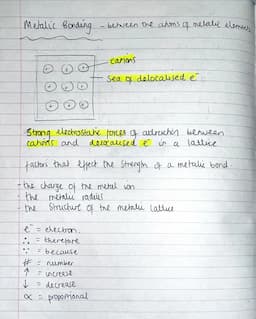 Metallic Bonding - between the atoms of metallic elements
cations
sea of delocalised e⁻
+ + +
+ + +
+ + +
Strong electrostatic forces of attraction between
cations and delocalised e⁻ in a lattice
factors that effect the strength of a metallic bond.
- the charge of the metal ion
- the metallic radius
- the structure of the metallic lattice
e⁻ = electron.
∴ = therefore
∵ = because
# = number
↑ = increase
↓ = decrease
∝ = proportional